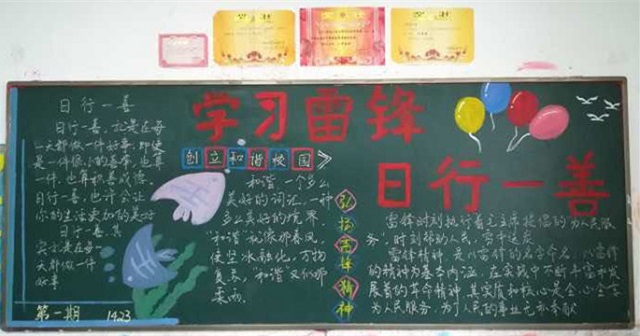 学习雷锋
日行一善
创立和谐校园
弘扬雷锋精神
日行一善
日行一善,就是在每
一天都做一件好事,即使
是一件很小的善事,也算
一件,也算积善成德,
日行一善,也许会让
你的生活更加的美好
日行一善,其
实就是在每一
天都做一件
好事
和谐,一个多么
美好的词汇,一种
多么美好的境界
"和谐"就像那春风,
使坚冰融化,万物
复苏,"和谐"又似那
雷锋时刻执行着毛主席提倡的为人民服
务,时刻帮助人民,
雷锋精神,是以雷锋的名字命名,以雷锋
的精神为基本内涵,在实践中不断丰富和发
展着的革命精神,其实质和核心是全心全意
为人民服务,为了人民的事业无私奉献
第一期
1423